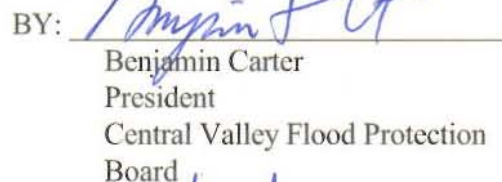 BY:
Benjamin Carter
President
Central Valley Flood Protection
Board